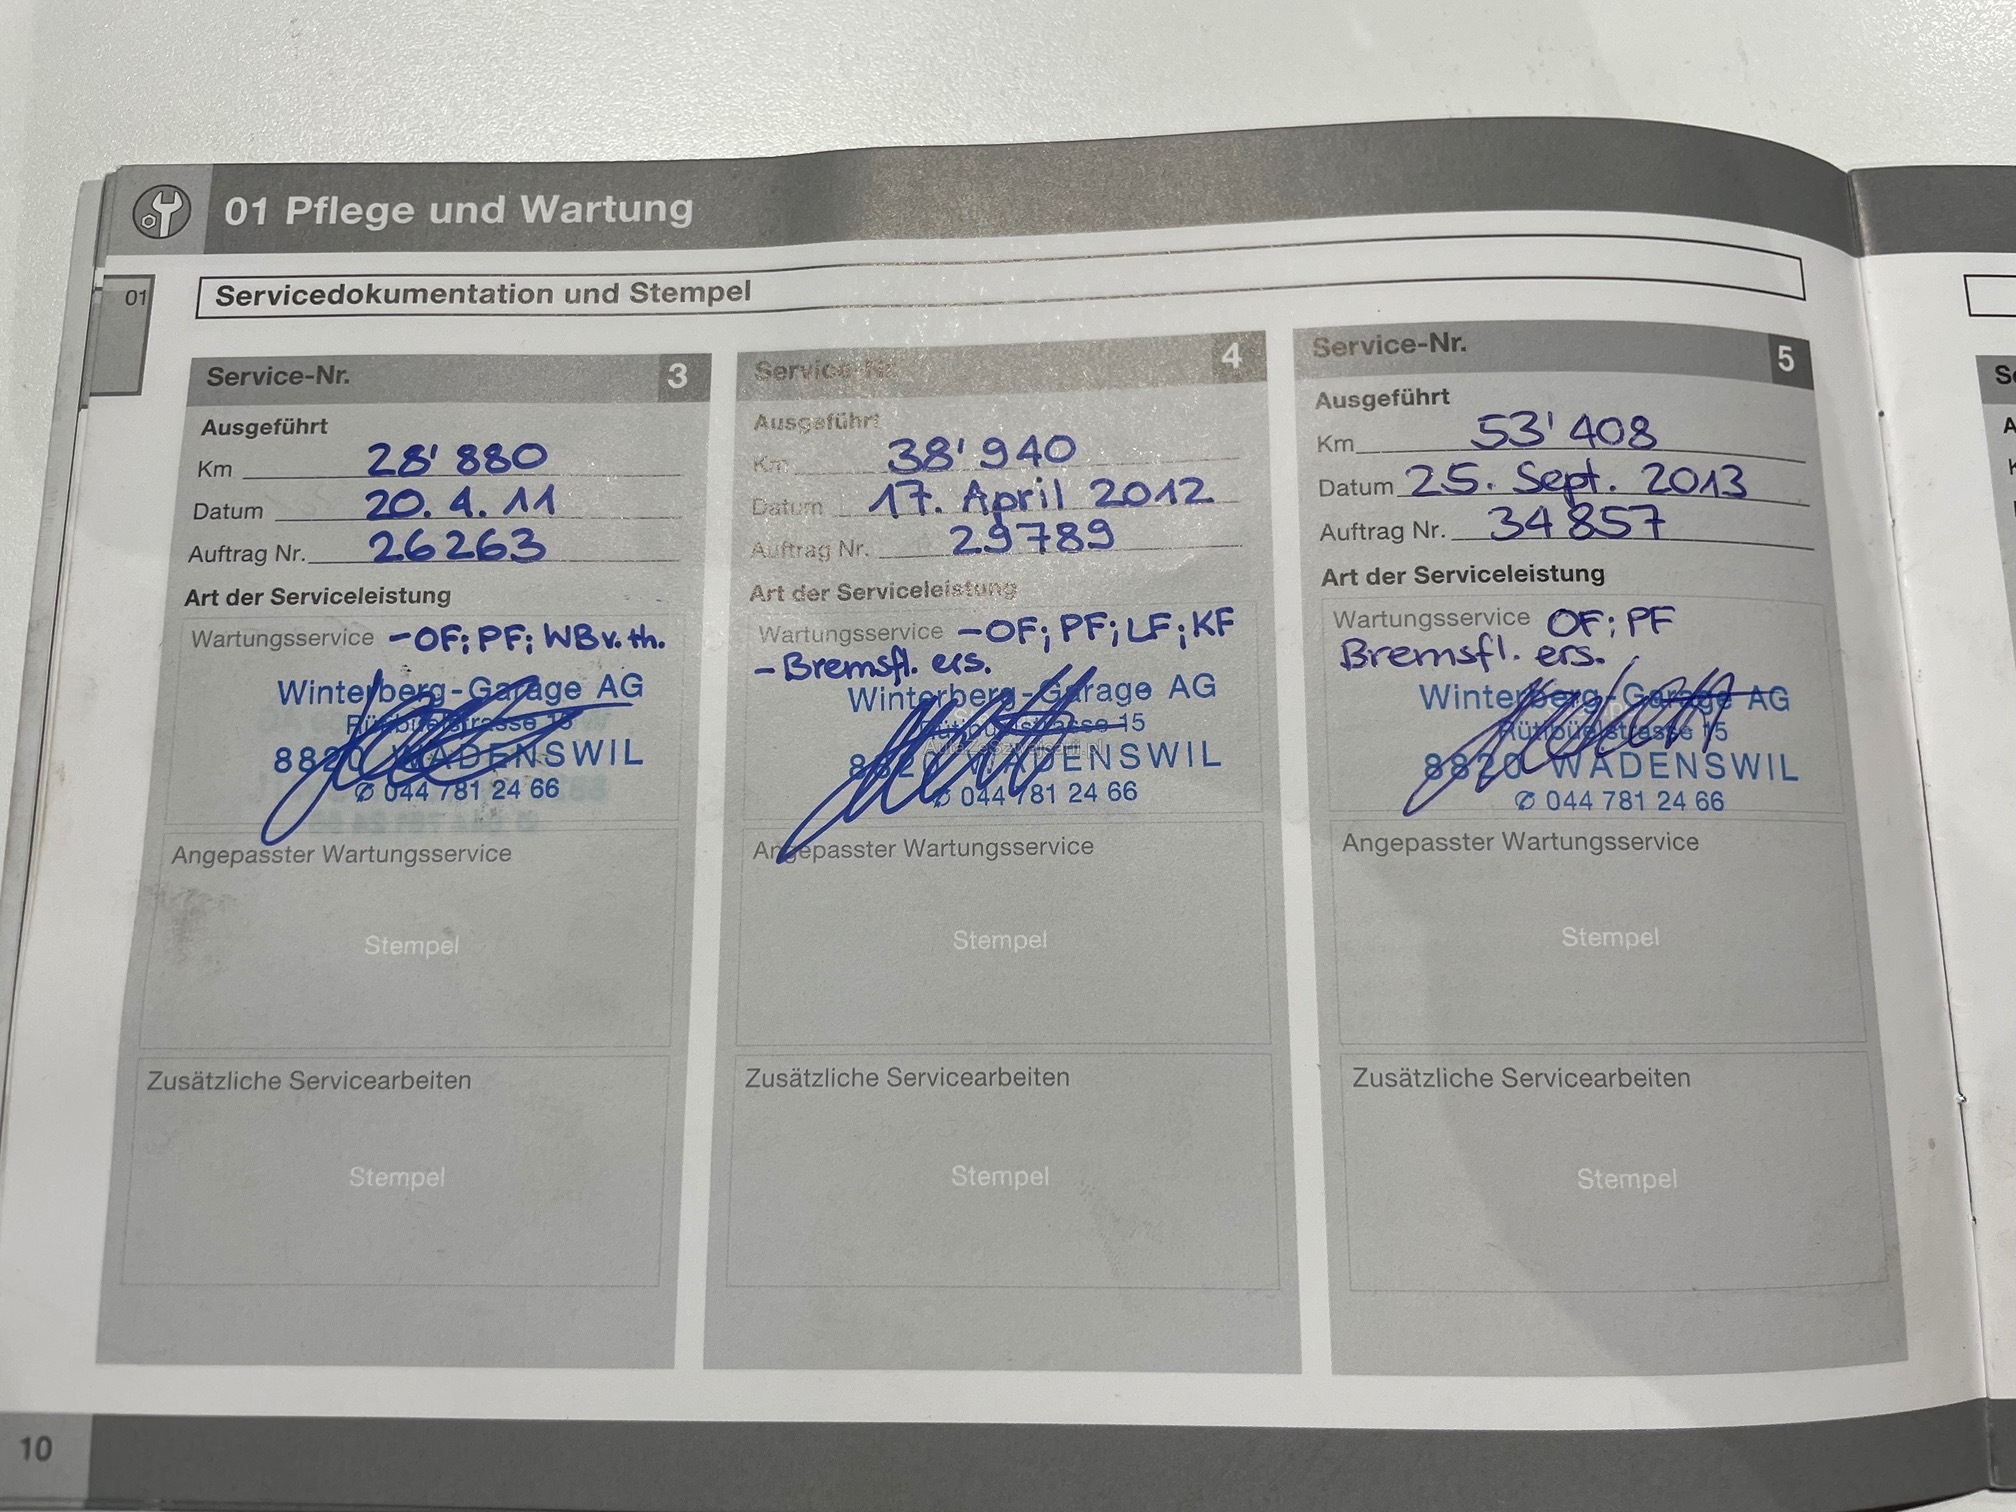 01 Pflege und Wartung
01
Servicedokumentation und Stempel
Service-Nr. 3
Ausgeführt
Km 28'880
Datum 20. 4. 11
Auftrag Nr. 26263
Art der Serviceleistung
Wartungsservice -OF; PF; WBv.th.
Winterberg-Garage AG
Rütibüelstrasse 15
8820 WÄDENSWIL
✆ 044 781 24 66
Angepasster Wartungsservice
Stempel
Zusätzliche Servicearbeiten
Stempel
Service-Nr. 4
Ausgeführt
Km 38'940
Datum 17. April 2012
Auftrag Nr. 29789
Art der Serviceleistung
Wartungsservice -OF; PF; LF; KF
-Bremsfl. ers.
Winterberg-Garage AG
Rütibüelstrasse 15
AutaZeSzwajcarii.pl
8820 WÄDENSWIL
✆ 044 781 24 66
Angepasster Wartungsservice
Stempel
Zusätzliche Servicearbeiten
Stempel
Service-Nr. 5
Ausgeführt
Km 53'408
Datum 25. Sept. 2013
Auftrag Nr. 34857
Art der Serviceleistung
Wartungsservice OF; PF
Bremsfl. ers.
Winterberg-Garage AG
Rütibüelstrasse 15
8820 WÄDENSWIL
✆ 044 781 24 66
Angepasster Wartungsservice
Stempel
Zusätzliche Servicearbeiten
Stempel
10